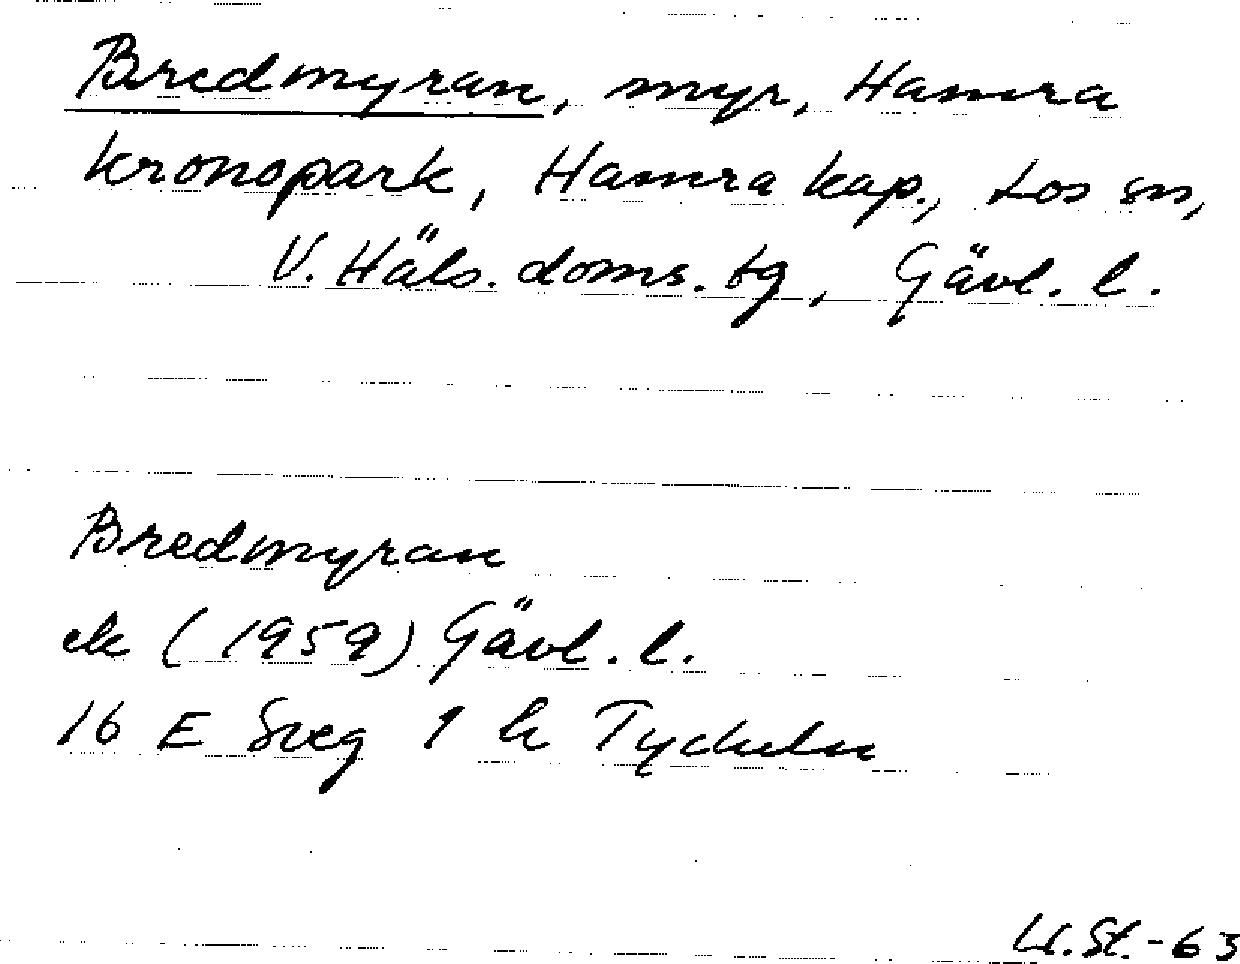 Bredmyran, myr, Hamra
kronopark, Hamra kap., Los sn,
V. Häls. doms. tg, Gävl. l.
Bredmyran
ek (1959) Gävl. l.
16 E Sveg 1 h Tyckeln
St. -63